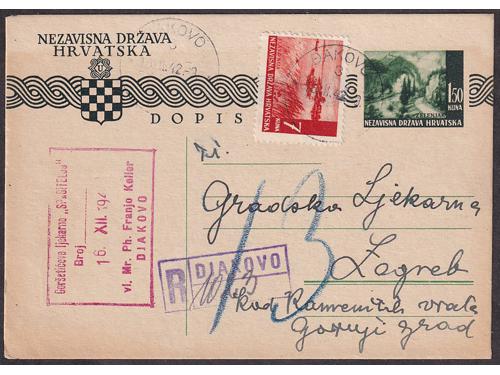 NEZAVISNA DRŽAVA
HRVATSKA
U
DOPIS
ĐAKOVO
ĐAKOVO
7
KUNA
NEZAVISNA DRŽAVA
HRVATSKA
1.50
KUNA
ZELENJAK
NEZAVISNA DRŽAVA HRVATSKA
Goršetićeva ljekarna „SPASITELJU"
Broj
16. XII. 194
vl. Mr. Ph. Franjo Keller
DJAKOVO
R
DJAKOVO
13
Gradska Ljekarna
Zagreb
kod Kamenitih vrata
Gornji grad